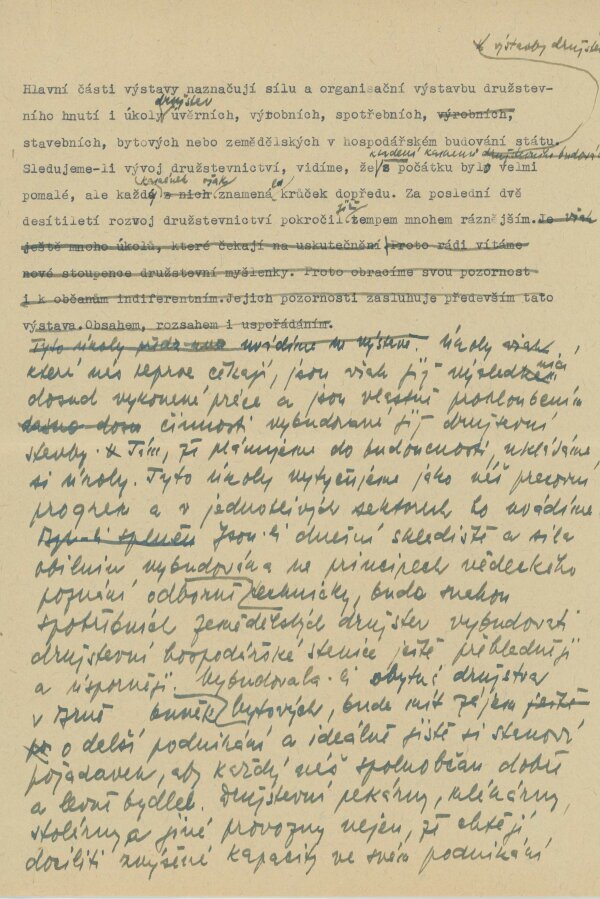 výstavby družstev
Hlavní části výstavy naznačují sílu a organisační výstavbu družstev-
družstev
ního hnutí i úkoly úvěrních, výrobních, spotřebních, výrobních,
stavebních, bytových nebo zemědělských v hospodářském budování státu.
Sledujeme-li vývoj družstevnictví, vidíme, že z počátku bylo velmi
pomalé, ale každý z nich znamenal krůček dopředu. Za poslední dvě
již
desítiletí rozvoj družstevnictví pokročil tempem mnohem ráznějším. Je však
ještě mnoho úkolů, které čekají na uskutečnění. Proto rádi vítáme
nové stoupence družstevní myšlenky. Proto obracíme svou pozornost
i k občanům indiferentním. Jejich pozornosti zasluhuje především tato
výstava. Obsahem, rozsahem i uspořádáním.
Tyto úkoly uvádíme na výstavě. Úkoly však,
které nás teprve čekají, jsou však již výsledkem
dosud vykonané práce a jsou vlastně prohloubením
činnosti vybudované již družstevní
stavby. Tím, že plánujeme do budoucnosti, ukládáme
si úkoly. Tyto úkoly vytyčujeme jako náš pracovní
program a v jednotlivých sektorech to uvádíme.
Jsou-li dnešní skladiště a sila
obilním vybudována na principech vědeckého
poznání odborně technicky, bude snahou
spotřebních zemědělských družstev vybudovati
družstevní hospodářské stanice ještě přehledněji
a úsporněji. Vybudovala-li obytná družstva
v Brně bytových, bude mít zájem ještě
o delší podnikání a ideálně jistě si stanoví
požadavek, aby každý náš spoluobčan dobře
a levně bydlel. Družstevní pekárny, mlékárny,
stolárny a jiné provozny nejen, že chtějí
docíliti zvýšené kapacity ve svém podnikání